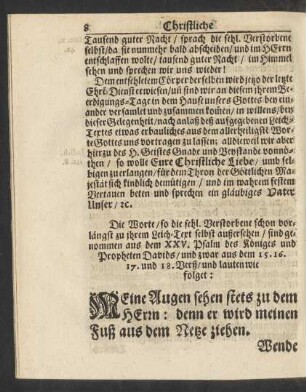 8 Christliche
Tausend guter Nacht / sprach die sehl. Verstorbene
selbst / da sie nunmehr bald abscheiden / und im HErrn
entschlaffen wolte / tausend guter Nacht / im Himmel
sehen und sprechen wir uns wieder!
Dem entseeltem Cörper derselben wird jetzo der letzte
Ehrē-Dienst erwiesen / uñ sind wir an diesem ihrem Be-
erdigungs-Tage in dem Hause unsers Gottes bey ein-
ander versamlet und zusammen kom̃en / in willens / bey
dieser Gelegenheit / nach anlaß des aufgegebenen Leich-
Textes etwas erbauliches aus dem allerheiligstē Wor-
te Gottes uns vortragen zu lassen; alldieweil wir aber
hierzu des H. Geistes Gnade und Beystande vonnö-
then / so wolle Eure Christliche Liebe / umb sel-
bigen zu erlangen / für dem Thron der Göttlichen Ma-
jestät sich kindlich demütigen / und im wahrem festem
Vertauen beten und sprechen ein gläubiges Vater
Unser / ꝛc.
Die Worte / so die sehl. Verstorbene schon vor-
längst zu ihrem Leich-Text selbst außersehen / sind ge-
nommen aus dem XXV. Psalm des Königes und
Propheten Davids / und zwar aus dem 15. 16.
17. und 18. Verß / und lauten wie
folget:
MEine Augen sehen stets zu dem
HErrn: denn er wird meinen
Fuß aus dem Netze ziehen.
Wende